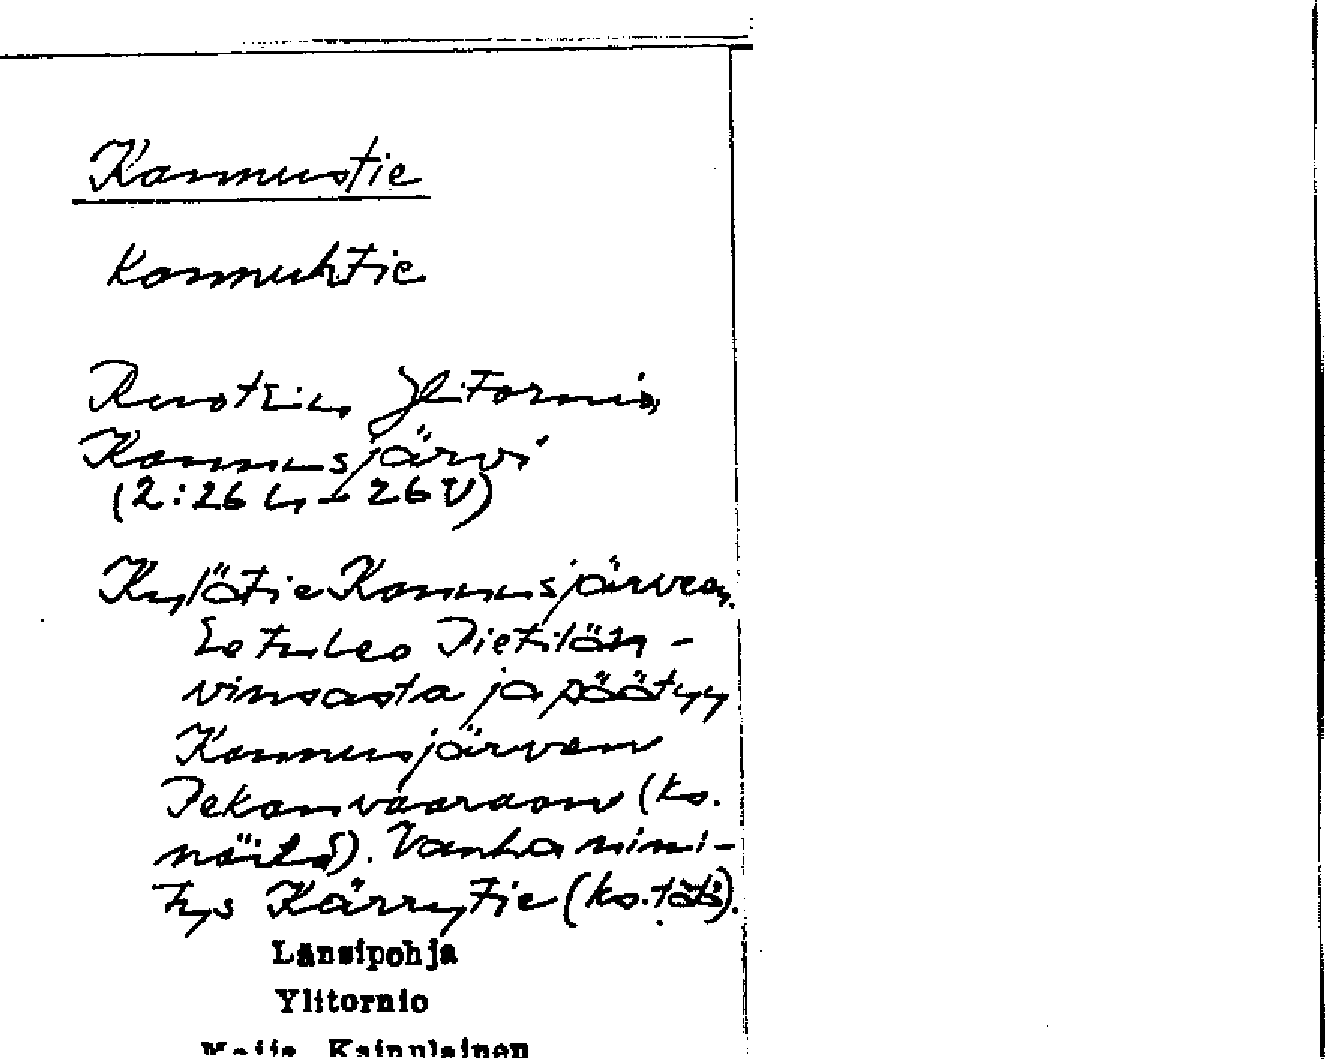 Kannustie
kannuhtie
Ruotsin Ylitornio,
Kannusjärvi
(2:26 L, – 26 V)
Kylätie Kannusjärven.
Se tulee Pietilän-
vinsasta ja päätyy
Kannusjärven
Pekanvaaraan (ks.
näitä). Vanha nimi-
tys Kärrytie (ks. tätä).
Länsipohja
Ylitornio
Maija Kainulainen